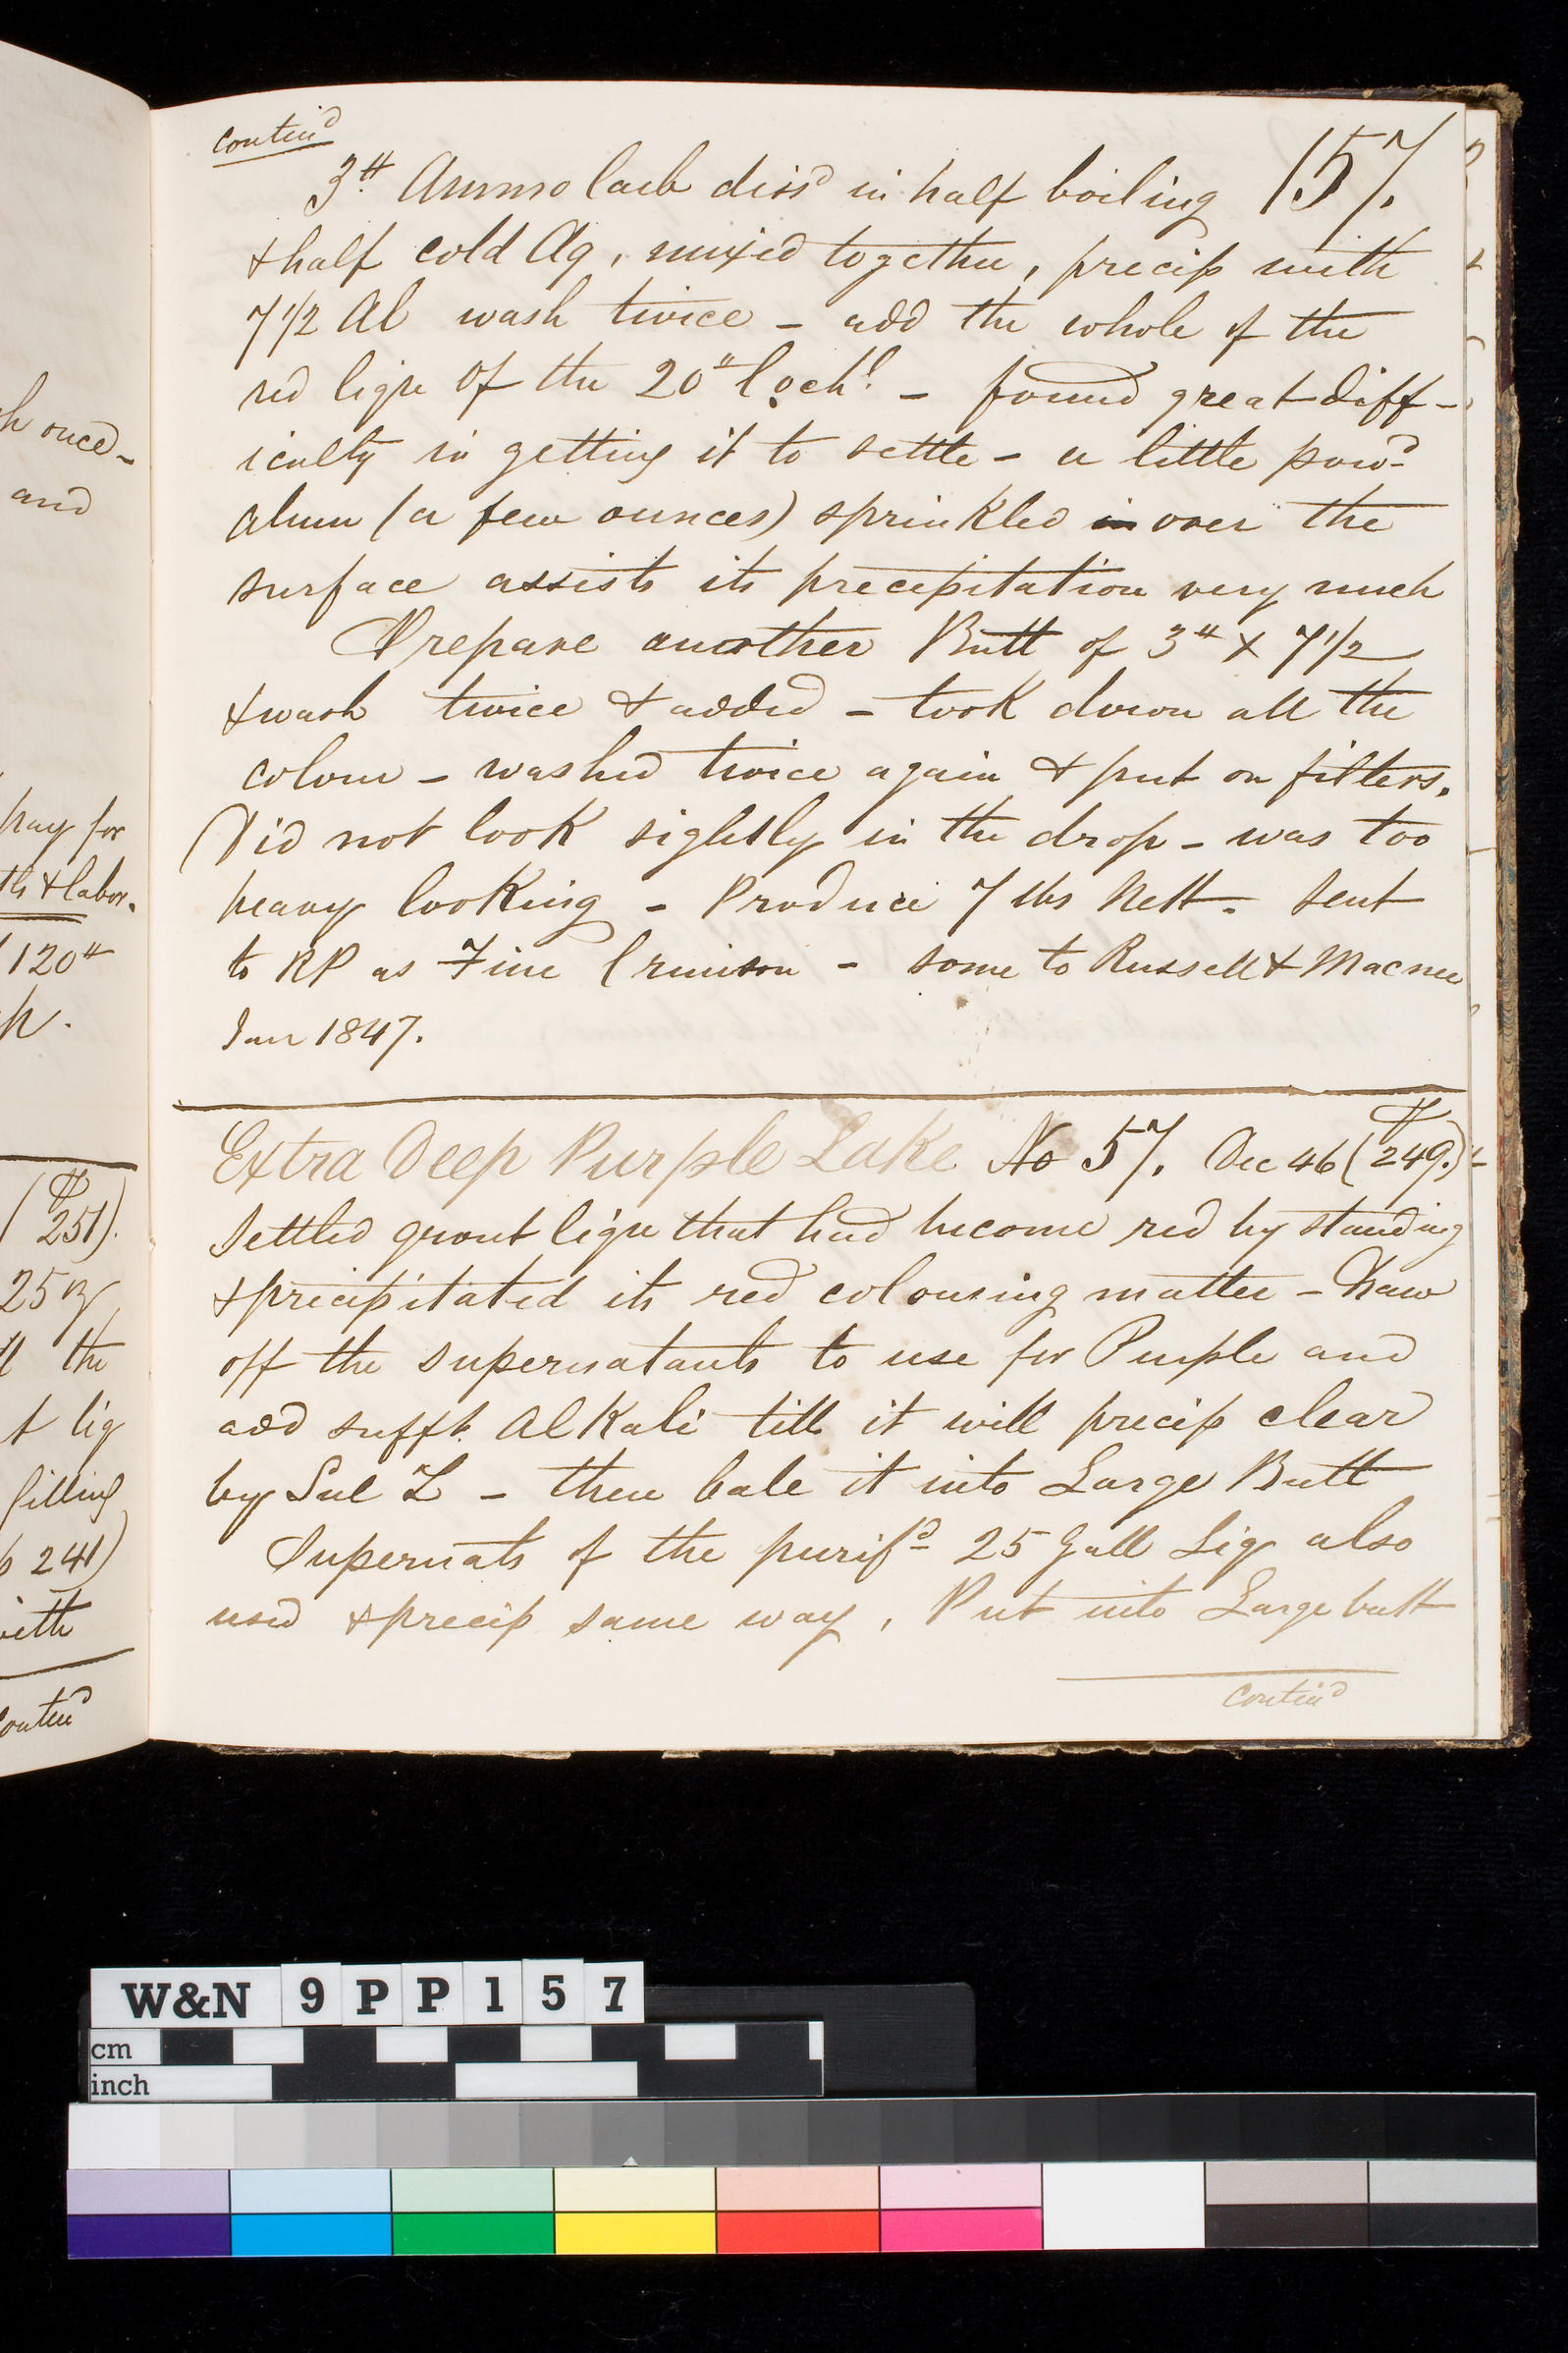 h once -
and
pay for
ths & labor.
120 ͭͭ
h.
(P 251).
25 oz
the
t liq
filling
p 241)
with
Contin^d
contin^d
157.
3 ͭͭ Ammo Carb diss^d in half boiling
& half cold Aq, mixed together, precip with
7 1/2 Al wash twice - add the whole of the
red liqr of the 20" Coch^l. - found great diff-
iculty in getting it to settle - a little pow^d
alum (a few ounces) sprinkled in over the
surface assists its precipitation very much
Prepare another Butt of 3" & 7 1/2
& wash twice & added - took down all the
colour - washed twice again & put on filters.
Did not look sightly in the drop - was too
heavy looking - Produce 7 lbs Nett. Sent
to RP as Fine Crimson - some to Russell & Macnee
Jan 1847.
Extra Deep Purple Lake No 57. Dec 46 (P 249.)
Settled grout liqr that had become red by standing
& precipitated its red colouring matter - Draw
off the supernatants to use for Purple and
add sufft. Alkali till it will precip clear
by Sul Z - then bale it into Large Butt
Supernats of the purif^d 25 Gall Liq also
used & precip same way, Put into Large butt
Contin^d
W&N 9PP157
cm
inch